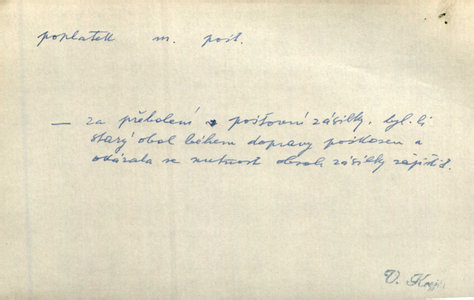 poplatek m. pošt.
— za přebalení poštovní zásilky, byl-li
starý obal během dopravy poškozen a
ukázala se nutnost obsah zásilky zajistit.
V.